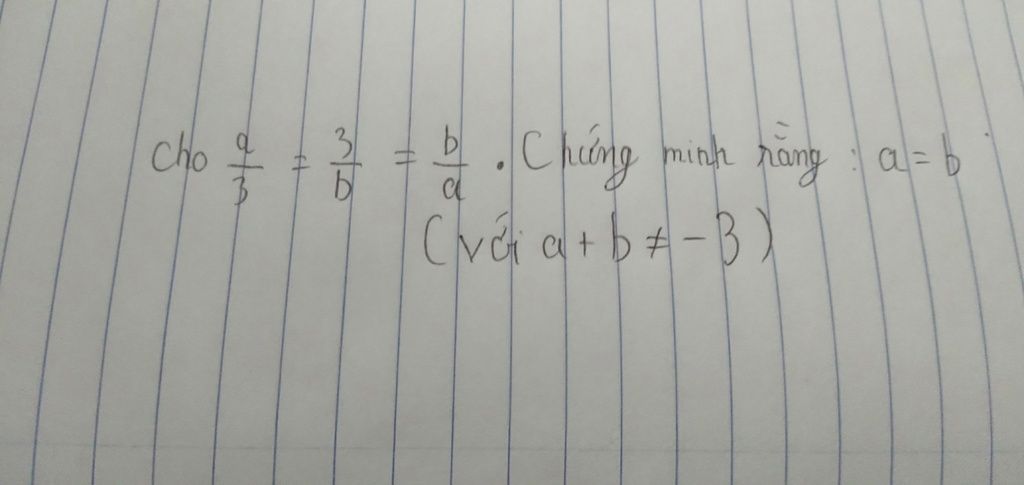 Cho a/3 = 3/b = b/a . Chứng minh rằng : a = b
(với a + b ≠ - 3)